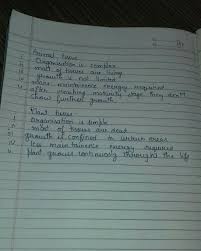 Animal tissue
i. Organisation is complex
ii. most of tissues are living
iii. growth is not limited
iv. more maintenence energy required
v. after reaching maturity stage they don't
show further growth
Plant tissue
i Organisation is simple
ii most of tissues are dead
iii growth is confined in certain areas
iv less maintenence energy required
v. Plant grows continuously throughout the life